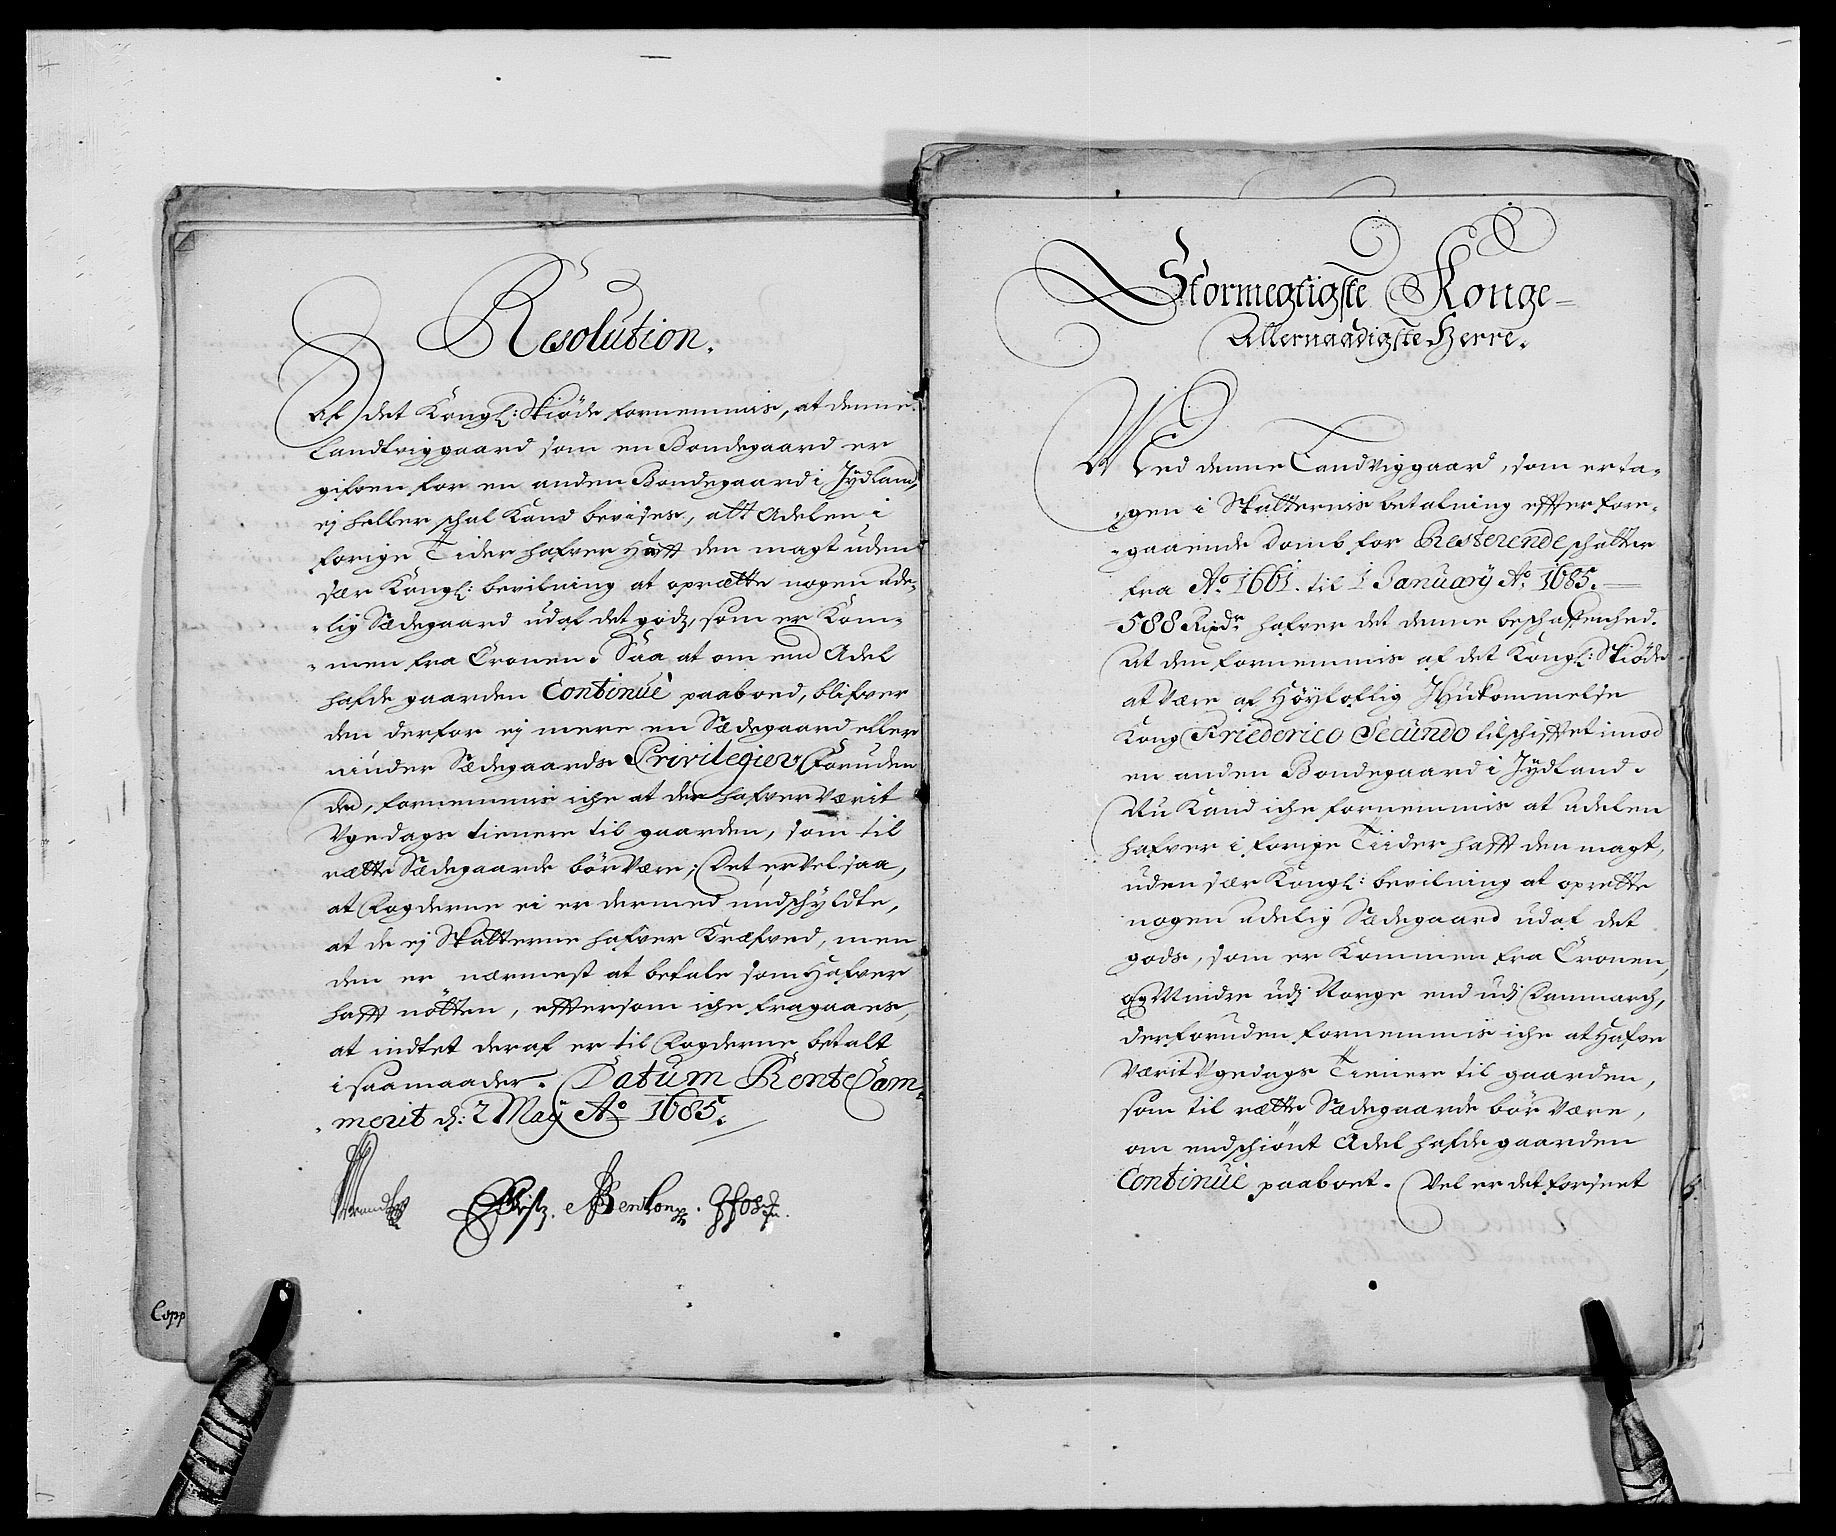 Resolution.
Af det Kongl: Skiøde fornemmis, at denne
Landkviggaard som en Bondegaard er
gifven for en anden Bondegaard i Jydland,
ej heller schal Kand bevises, att Adelen i
forige Tider hafver hafft den magt uden
sær Kongl: bevilning at oprætte nogen ade-
-lig Sædegaard udaf det godz, som er Kom-
-men fra Cronen. Saa at om end Adel
hafde gaarden Continué paaboed, blifver
den derfor ej mere en Sædegaard eller
niuder Sædegaards Privilegier, Foruden
det, fornemmis iche at der hafver Værit
Vgedags tienere til gaarden, som til
rætte Sædegaarde bör Være; Det er Vel saa,
at Fogderne ei er dermed undschyldte,
at de ej Skatterne hafver Kræfved, men
den er nærmest at betale som Hafver
hafft nötten, effttersom iche fragaaes,
at indtet deraf er til Fogderne betalt
i saamaader. Datum RenteCam-
-merit d: 2 May Ao 1685.
Brandt
Stormegtigste Konge-
Allernaadigste Herre.
Med denne Landviggaard, som er ta-
-gen i Skatternis betalning effter fore-
-gaaende Domb for Resterende schatter
fra Ao 1661. til 1 January Ao 1685.
588 Rixdr hafver det denne beschaffenhed.
At den fornemmis af det Kongl: Skiøde
at Være af Höyloflig Ihukommelse
Kong Friederico Secundo tilschifftet imod
en anden Bondegaard i Jydland.
Nu Kand iche fornemmis at adelen
hafver i forige Tiider hafft den magt,
uden sær Kongl: bevilning at oprette
nogen adelig Sædegaard udaf det
gods, som er Kommen fra Cronen,
og Mindre udj Norge end udj Danmarch,
derforuden fornemmis iche at Hafve
Værit Vgedags Tienere til gaarden,
som til rætte Sædegaarde bör Være,
om endschiönt Adel hafde gaarden
Continué paaboet. Vel er det forseet
Copp